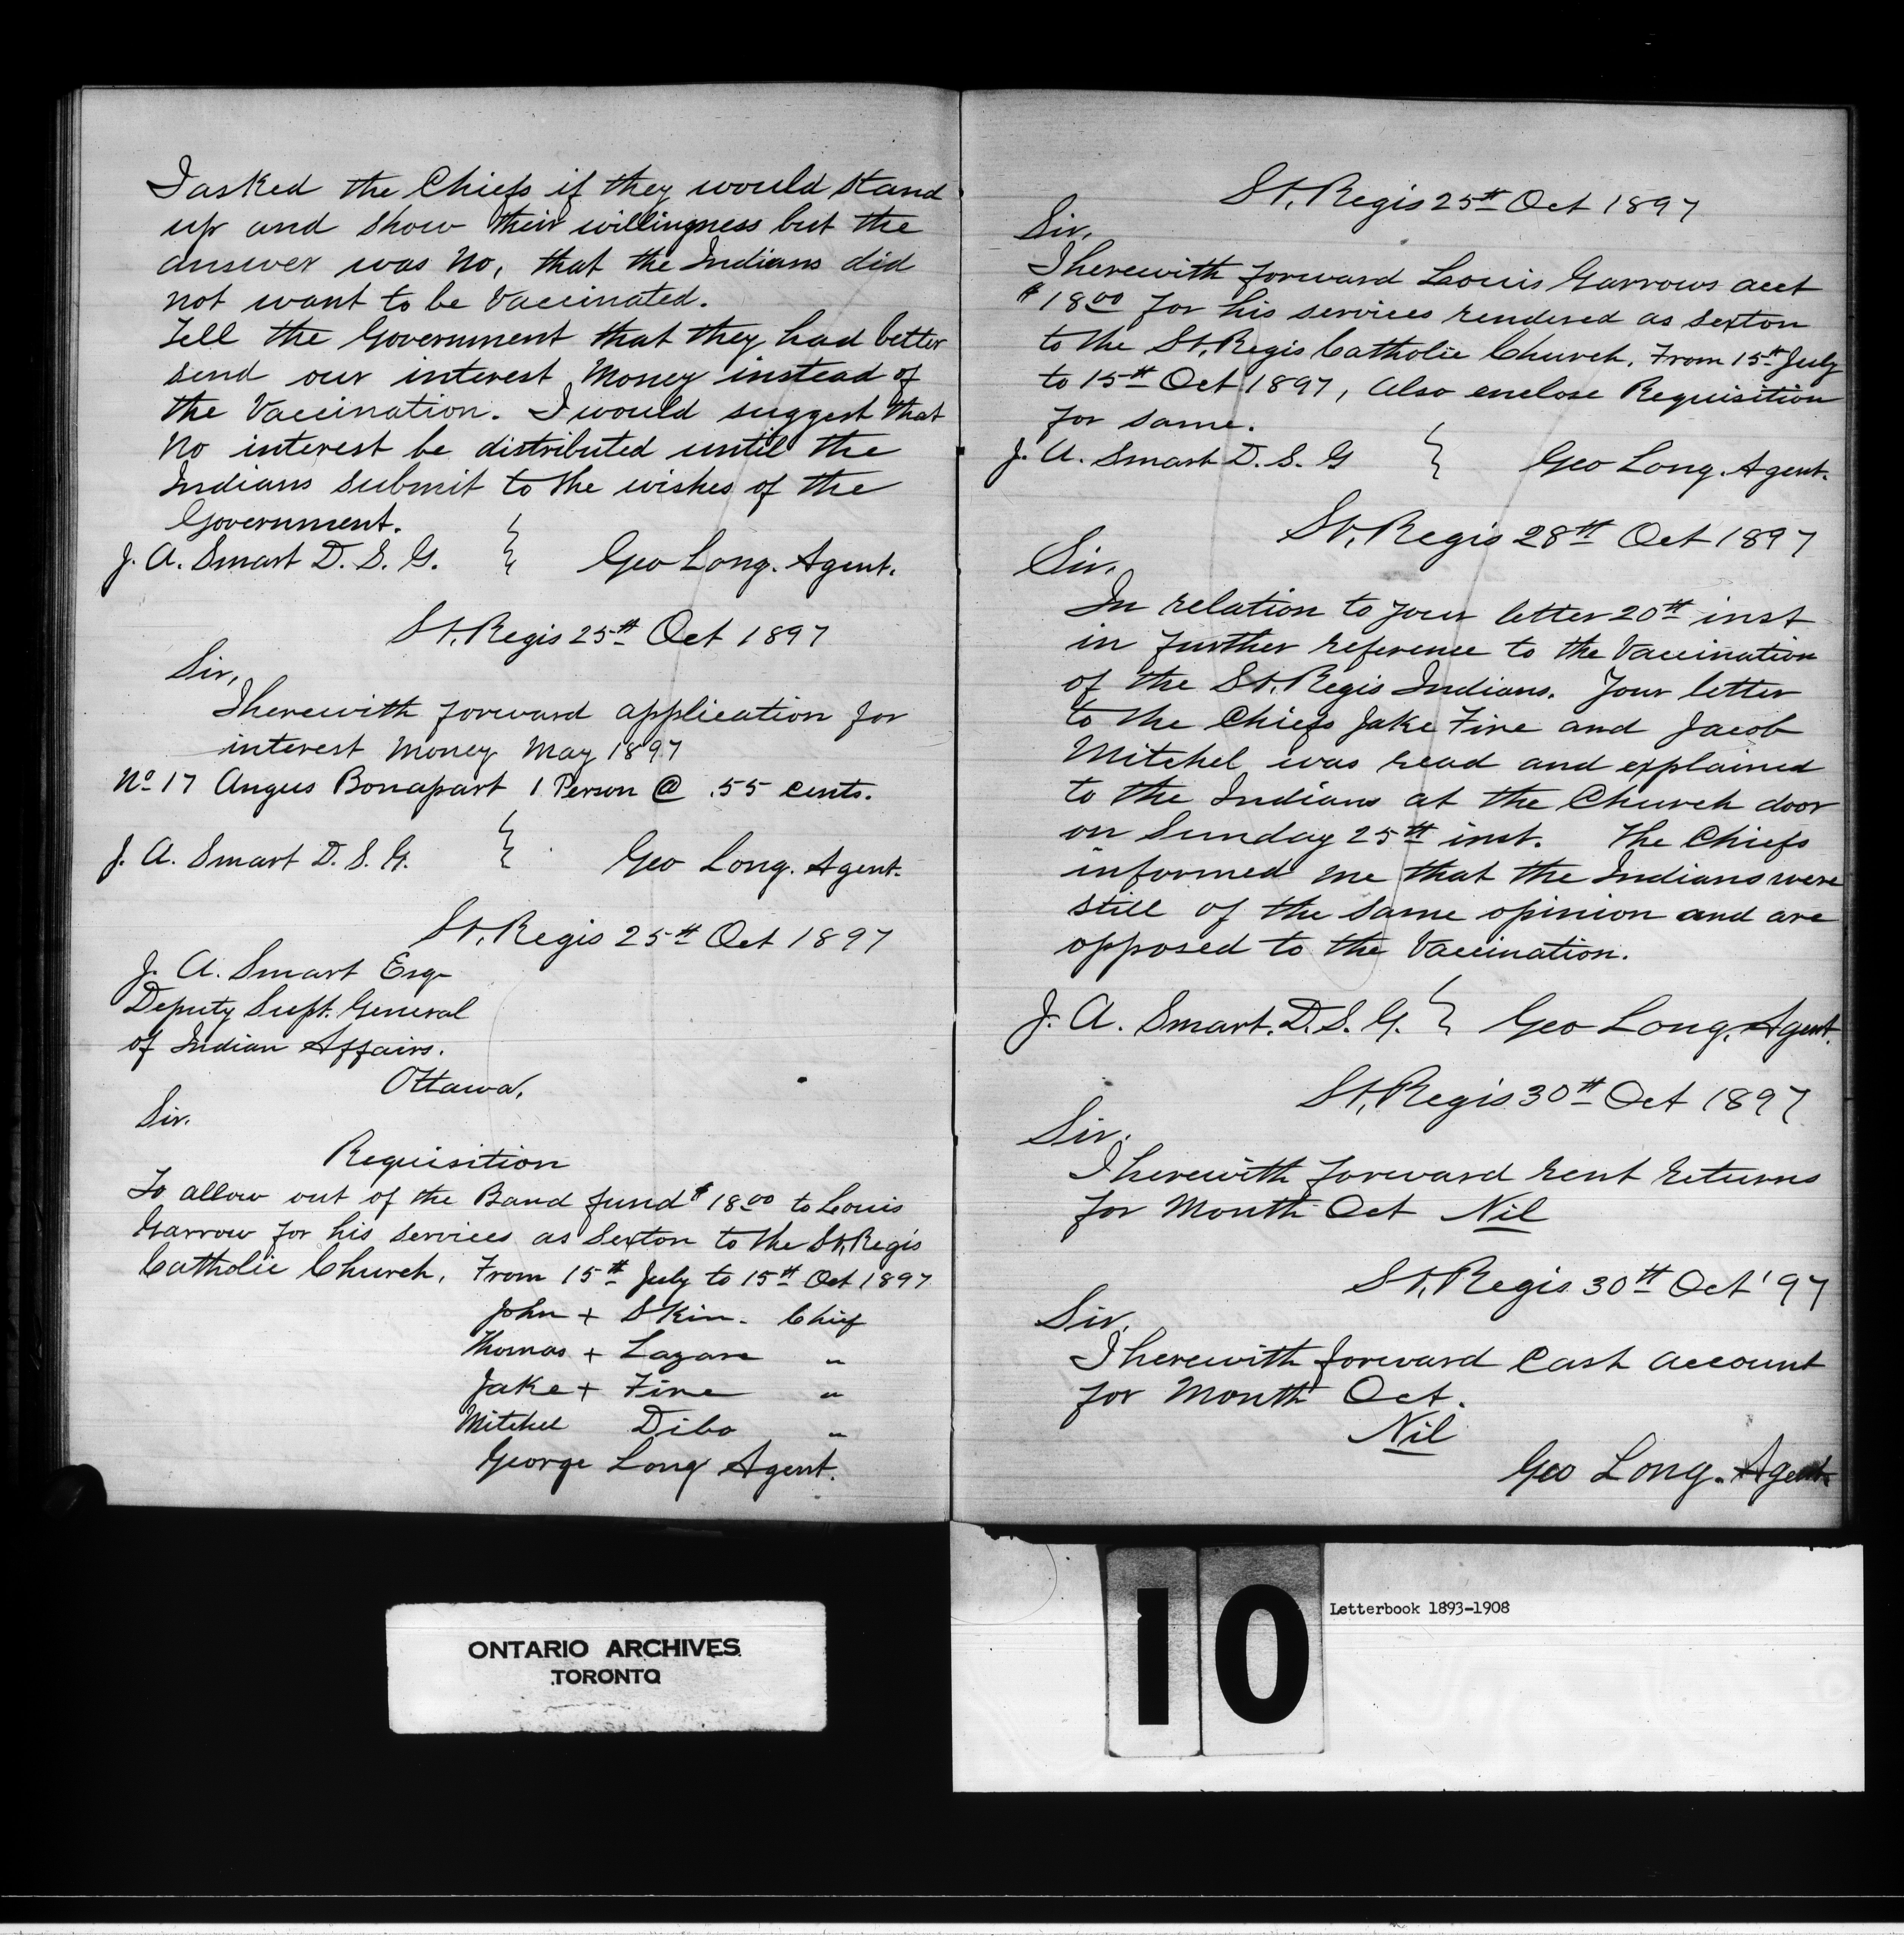 I asked the Chiefs if they would stand
up and show their willingness but the
answer was No, that the Indians did
not want to be Vaccinated.
Tell the Government that they had better
send our interest Money instead of
the Vaccination. I would suggest that
No interest be distributed until the
Indians submit to the wishes of the
Government.
J. A. Smart D. S. G. } Geo Long. Agent.
St. Regis 25th Oct 1897
Sir,
I herewith forward application for
interest Money May 1897
No 17 Angus Bonapart 1 Person @ .55 cents.
J. A. Smart D. S. G. } Geo Long. Agent.
St. Regis 25th Oct 1897
J. A. Smart Esq
Deputy Supt. General
of Indian Affairs.
Ottawa.
Sir.
Requisition
To allow out of the Band fund $18.00 to Louis
Garrow for his services as Sexton to the St. Regis
Catholic Church. From 15th July to 15th Oct 1897
John + Skin. Chief
Thomas + Lazare "
Jake + Fire "
Mitchel Dibo "
George Long Agent.
St. Regis 25th Oct 1897
Sir,
I herewith forward Louis Garrows acct
$18.00 for his services rendered as sexton
to the St. Regis Catholic Church. From 15th July
to 15th Oct 1897, Also enclose Requisition
for same.
J. A. Smart D. S. G } Geo Long. Agent.
St. Regis 28th Oct 1897
Sir.
In relation to your letter 20th inst
in further reference to the Vaccination
of the St. Regis Indians. Your letter
to the Chiefs Jake Fire and Jacob
Mitchel was read and explained
to the Indians at the Church door
on Sunday 25th inst. The Chiefs
informed me that the Indians were
still of the same opinion and are
opposed to the Vaccination.
J. A. Smart. D. S. G. } Geo Long. Agent.
St. Regis 30th Oct 1897
Sir.
I herewith forward rent returns
for Month Oct Nil
St. Regis 30th Oct '97
Sir.
I herewith forward Cash Account
for Month Oct.
Nil
Geo Long. Agent
10
Letterbook 1893-1908
ONTARIO ARCHIVES
TORONTO